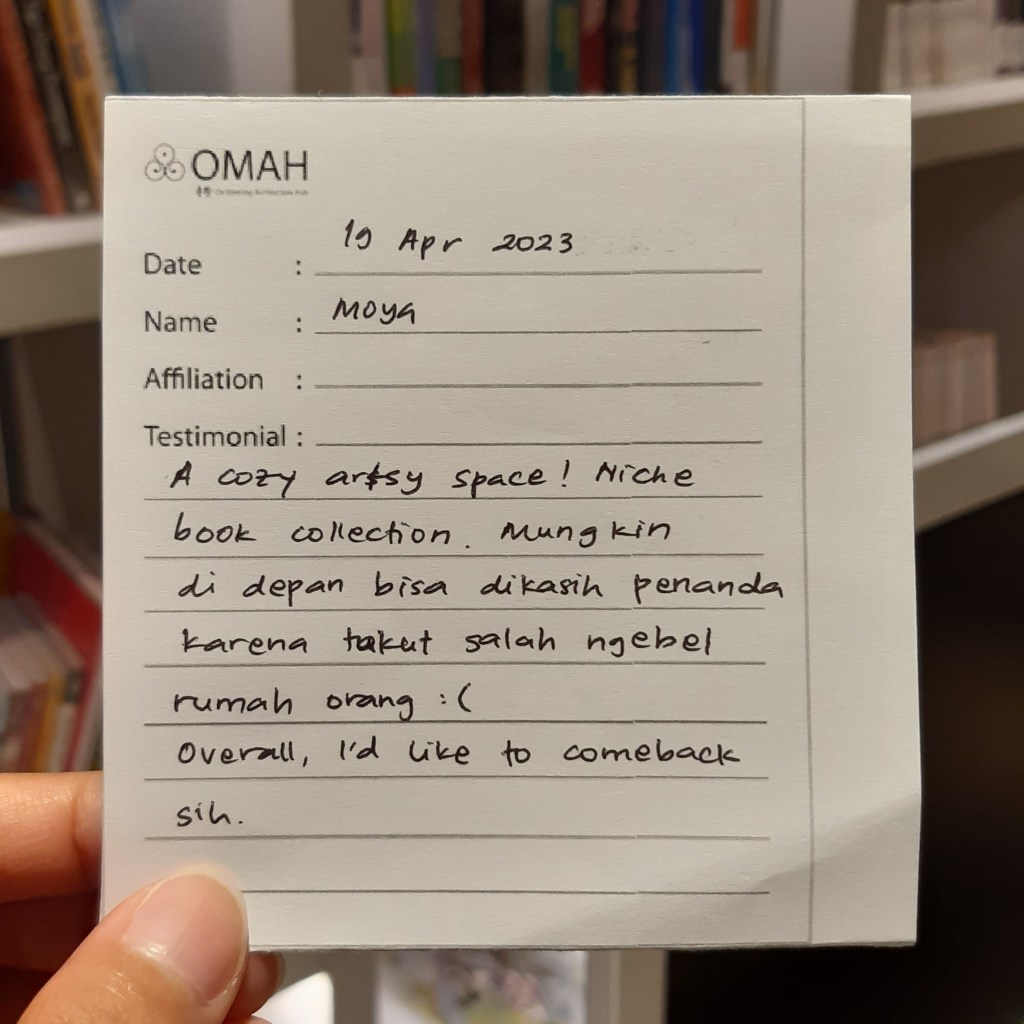 OMAH
Date : 19 Apr 2023
Name : Moya
Affiliation :
Testimonial :
A cozy artsy space! Niche
book collection. Mungkin
di depan bisa dikasih penanda
karena takut salah ngebel
rumah orang :(
Overall, I'd like to comeback
sih.